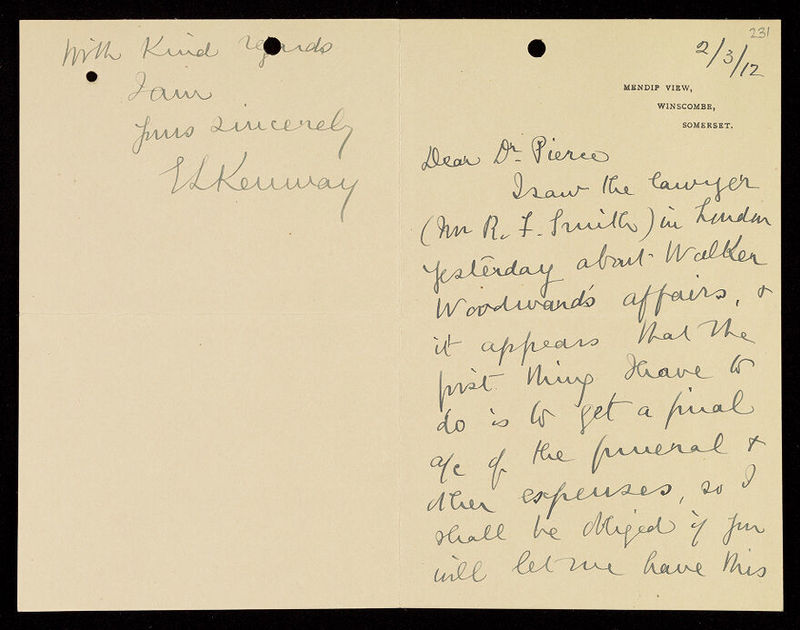 231
2/3/12
MENDIP VIEW,
WINSCOMBE,
SOMERSET.
Dear Dr. Pierce
I saw the lawyer
(Mr R. F. Smith) in London
yesterday about Walker
Woodward's affairs, &
it appears that the
first thing I have to
do is to get a final
a/c of the funeral &
other expenses, so I
shall be obliged if you
will let me have this
With Kind regards
I am
Yours sincerely
Kenway